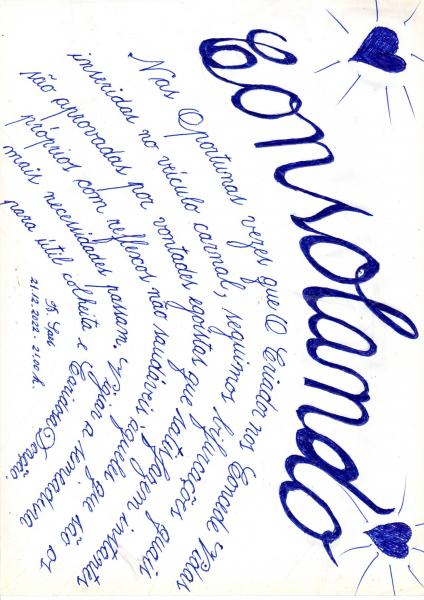 Consolando
Nas Oportunas vezes que O Criador nos Concede Vidas
inseridas no veículo carnal, seguimos bifurcações quais
são aprovadas por vontades egoístas que satisfazem instantes
próprios com reflexos não saudáveis àqueles que são os
mais necessidades passam. Vigiar a semeadura
para útil colheita e Caridosa Doação.
21.12.2022 - 21:00 h.